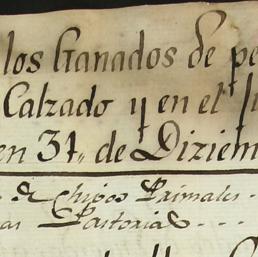 los Ganados de pe
Calzado y en el Ju
en 31,, de Diziem
de Chivos Primales
as Pastorias